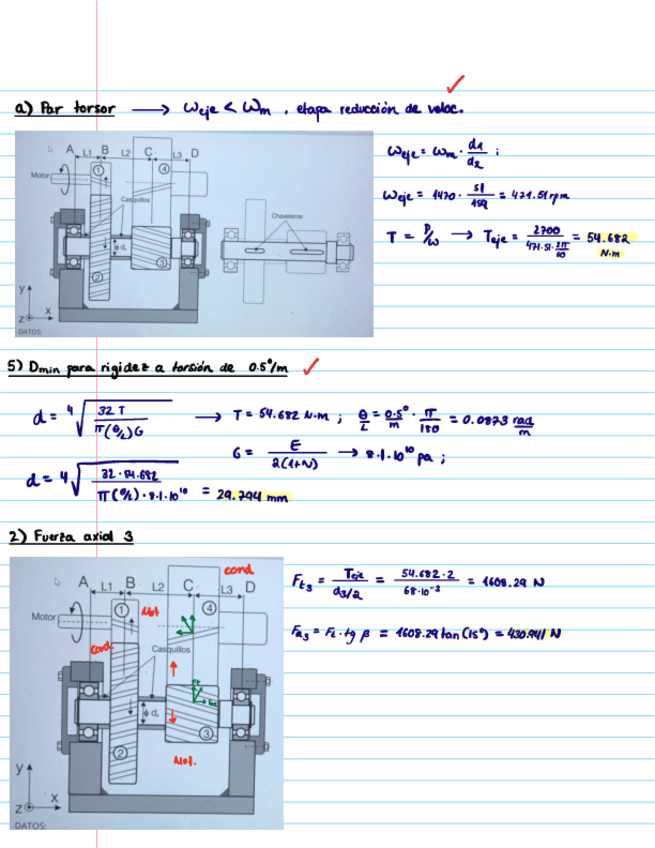 a) Par torsor → ωeje < ωm , etapa reducción de veloc.
A L1 B L2 C L3 D
Motor
1
4
Casquillos
Chaveteros
ϕ d
3
2
y
x
z
DATOS:
ωeje = ωm · d1/d2 ;
ωeje = 1470 · 51/159 = 471.51 rpm
T = P/ω → Teje = 2700/(471.51 · 2π/60) = 54.682 N·m
5) Dmin para rigidez a torsión de 0.5°/m
d = ⁴√(32 T / π(θ/L)G) → T = 54.682 N·m ; θ/L = 0.5°/m · π/180 = 0.0873 rad/m
G = E/2(1+N) → 8.1·10¹⁰ pa ;
d = ⁴√(32 · 54.682 / π(θ/L) · 8.1·10¹⁰) = 29.794 mm
2) Fuerza axial 3
cond.
A L1 B L2 C L3 D
Motor
1
Mot
4
Cond.
Casquillos
ϕ d
3
2
Mot.
y
x
z
DATOS:
Ft3 = Teje/(d3/2) = 54.682 · 2 / 68·10⁻³ = 1608.29 N
Fa3 = Ft · tg β = 1608.29 tan (15°) = 430.941 N